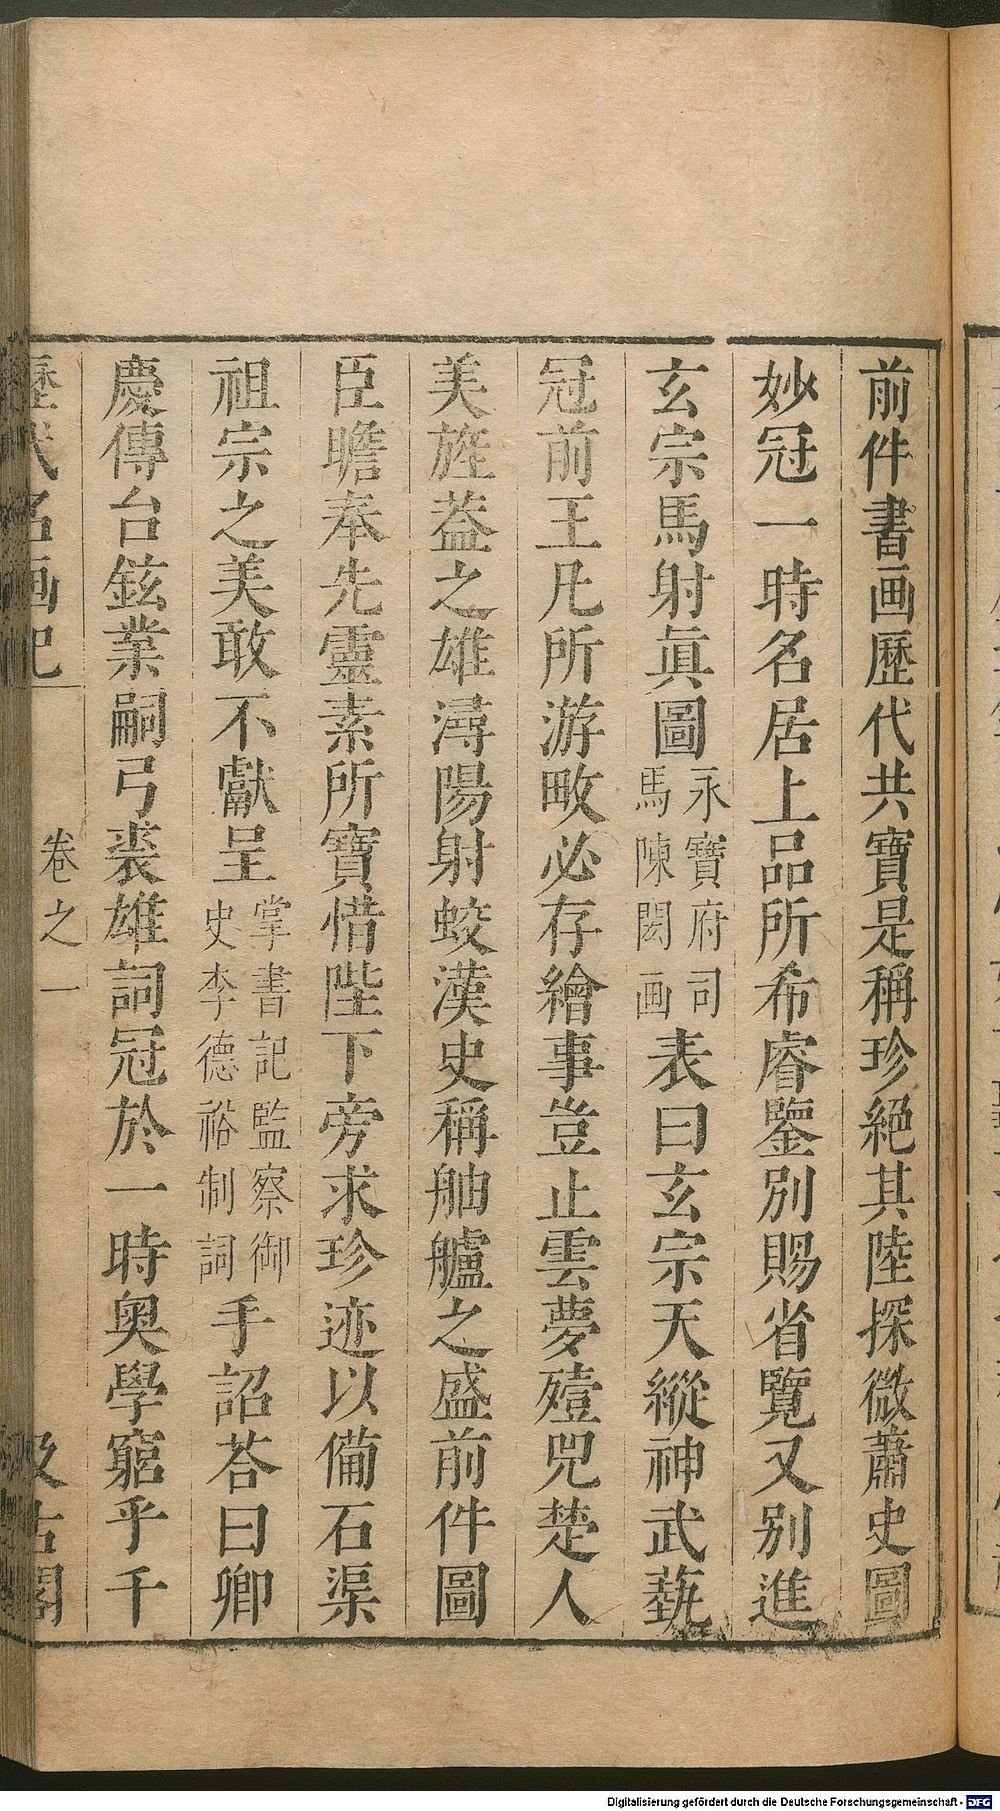 前件書画歷代共寶是稱珍絕其陸探微蕭史圖
妙冠一時名居上品所希睿鑒別賜省覽又別進
玄宗馬射眞圖永寶府司馬陳閎画表曰玄宗天縱神武藝
冠前王凡所游畋必存繪事豈止雲夢殪兕楚人
美旌葢之雄潯陽射蛟漢史稱舳艫之盛前件圖
臣瞻奉先靈素所寶惜陛下旁求珍迹以備石渠
祖宗之美敢不獻呈掌書記監察御史李德裕制詞手詔荅曰卿
慶傳台鉉業嗣弓裘雄詞冠於一時奥學窮乎千
歷代名画記 卷之一 汲古閣
Digitalisierung gefördert durch die Deutsche Forschungsgemeinschaft - DFG